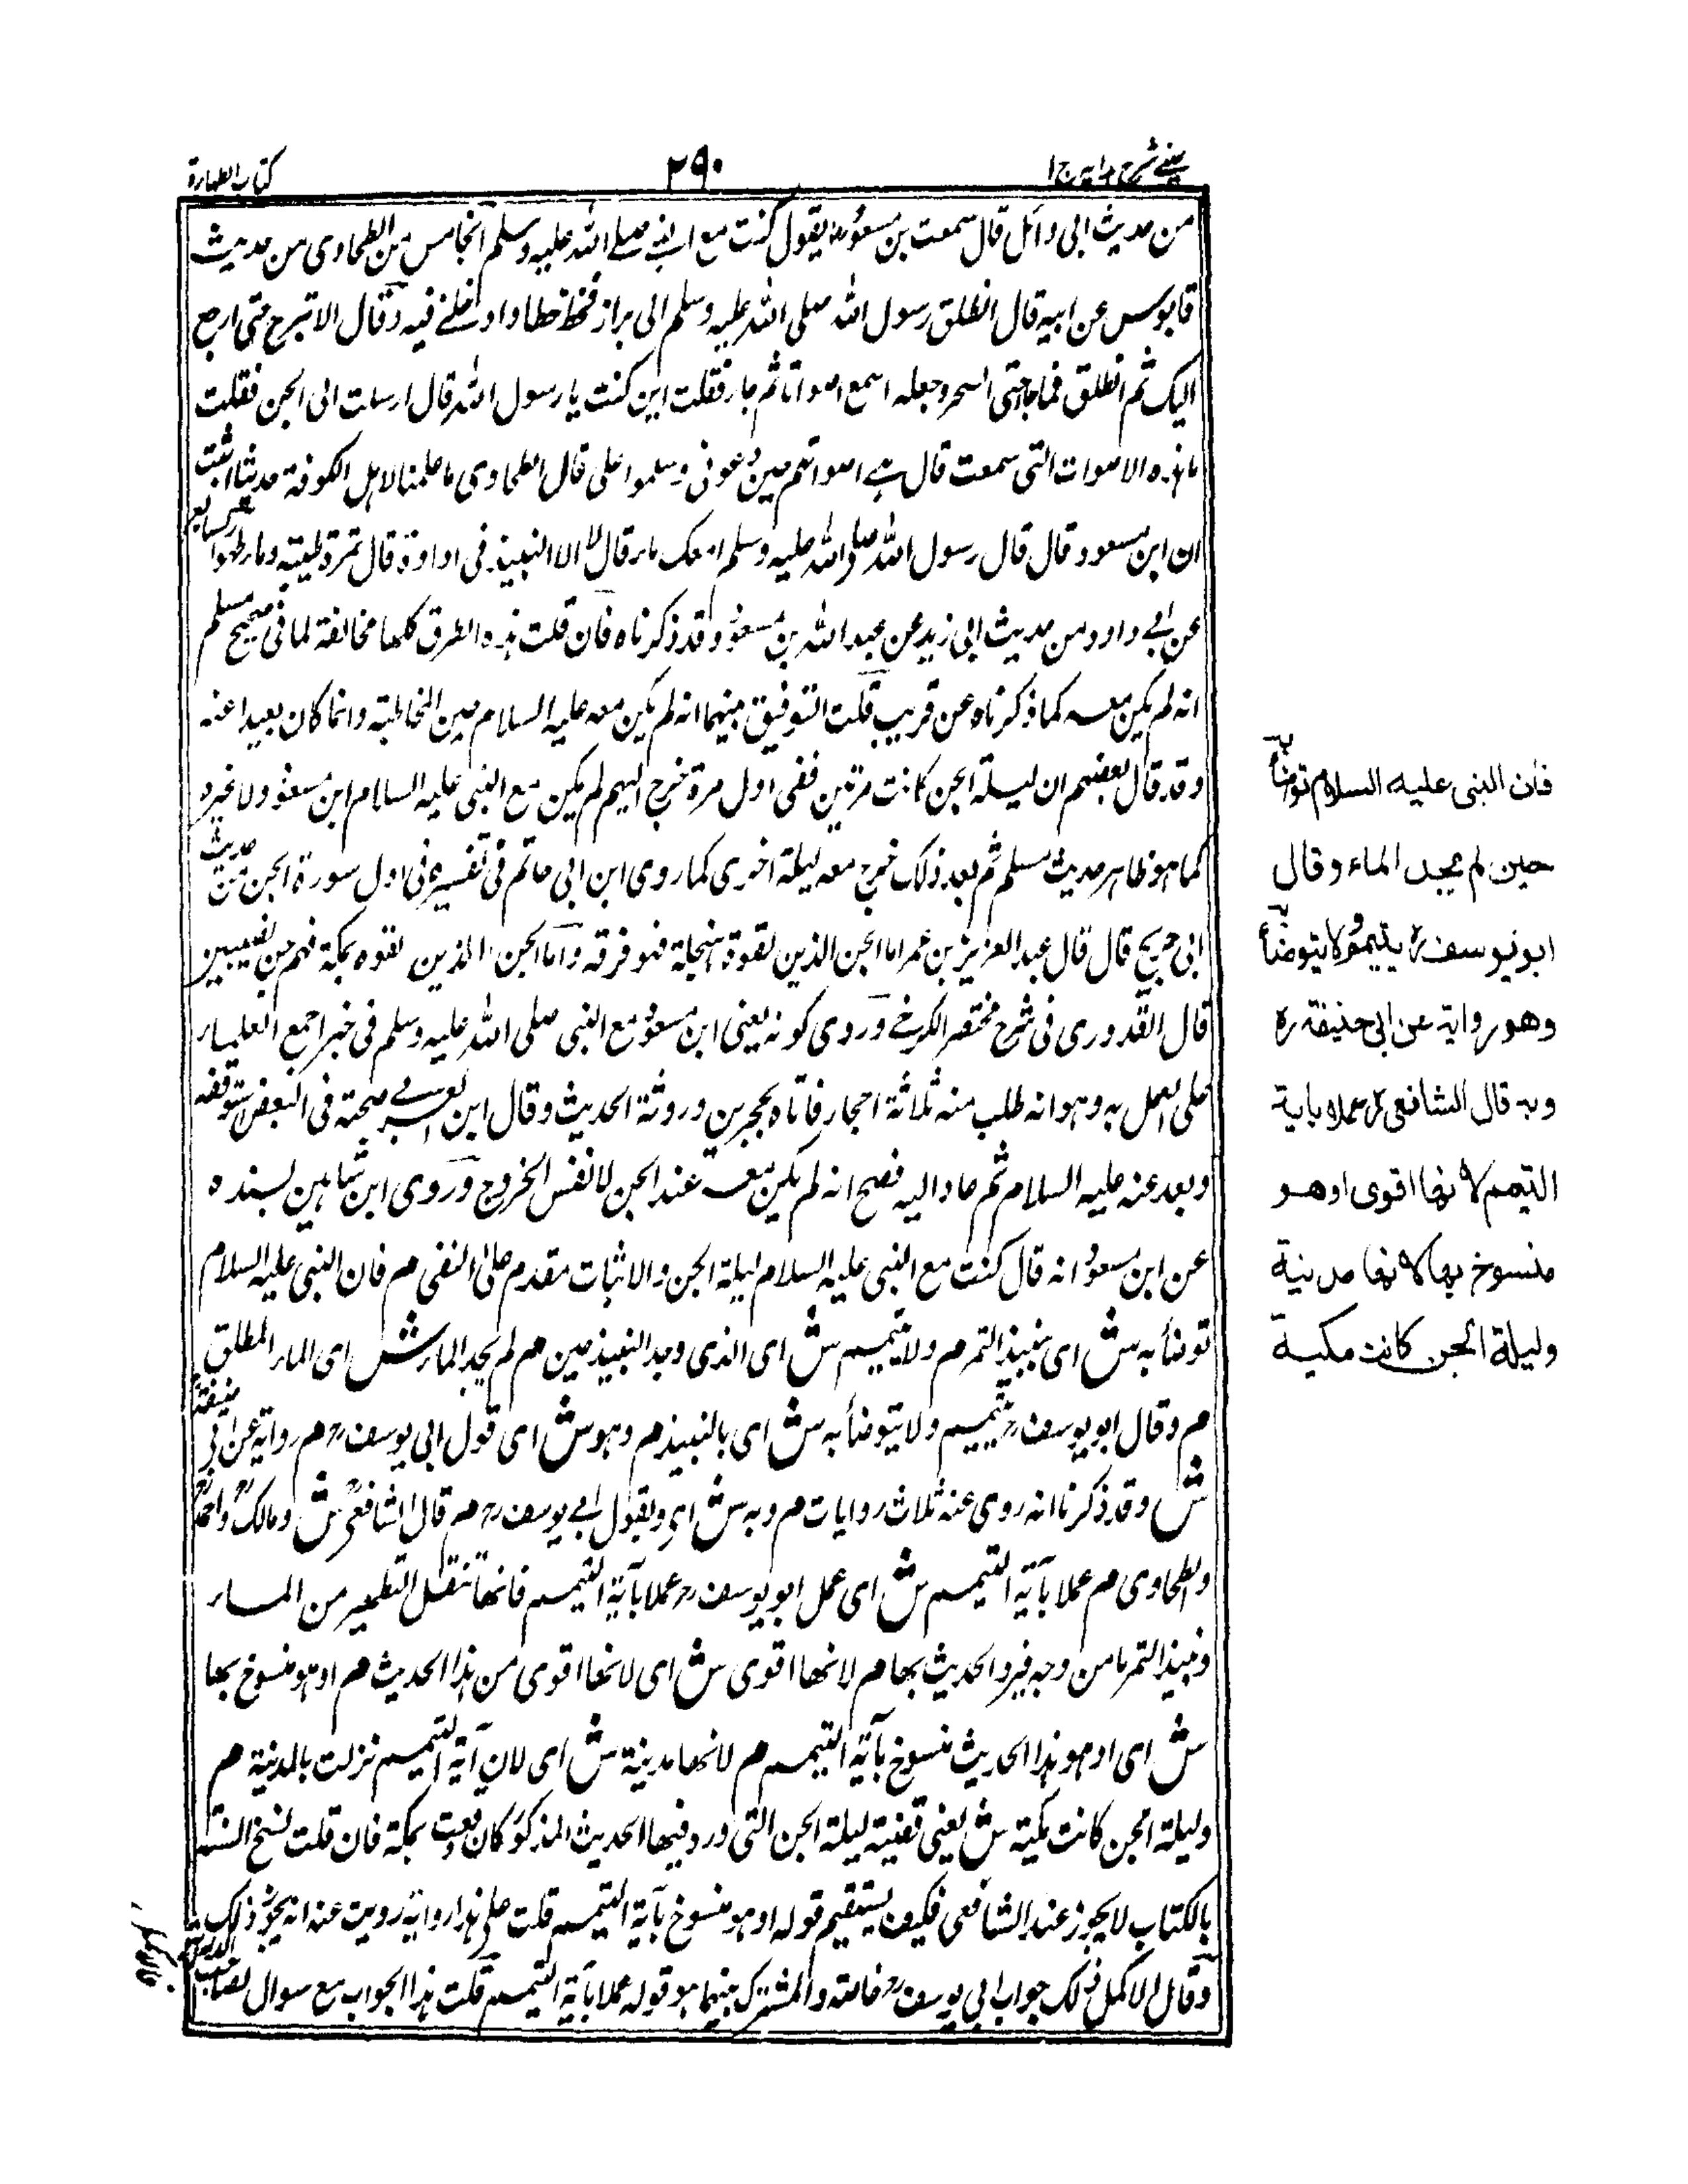 عينى شرح هدايه ج ا
٢٩٠
كتاب الطهارة
من حديث ابى وائل قال سمعت بن مسعود يقول كنت مع النبى صلى الله عليه وسلم الخامس من الطحاوى من حديث
قابوس عن ابيه قال انطلق رسول الله صلى الله عليه وسلم الى براز فخط خطا وادخلنى فيه وقال لا تبرح حتى ارجع
اليك ثم انطلق فما جاء حتى السحر وجعلت اسمع اصواتا ثم جاء فقلت اين كنت يا رسول الله قال ارسلت الى الجن فقلت
ما هذه الاصوات التى سمعت قال هى اصواتهم حين دعونى وسلموا على قال الطحاوى ما علمنا لاهل الكوفة حديثا اثبت
ان ابن مسعود قال قال رسول الله صلى الله عليه وسلم امعك ماء قال لا الا النبيذ فى اداوة قال تمرة طيبة وماء طهور
عن ابى داود من حديث ابى زيد عن عبد الله بن مسعود وقد ذكرناه فان قلت هذه الطرق كلها مخالفة لما فى صحيح مسلم
انه لم يكن معه كما ذكرناه عن قريب قلت التوفيق بينهما انه لم يكن معه عليه السلام حين المخاطبة وانما كان بعيدا عنه
وقد قال بعضهم ان ليلة الجن كانت مرتين ففى اول مرة خرج اليهم لم يكن مع النبى عليه السلام ابن مسعود ولا غيره
كما هو ظاهر حديث مسلم ثم بعد ذلك خرج معه ليلة اخرى كما روى ابن ابى حاتم فى تفسيره فى اول سورة الجن من حديث
ابن جريج قال قال عبد العزيز بن عمر اما الجن الذين لقوه بنخلة فهو فرقه واما الجن الذين لقوه بمكة فهم من نصيبين
قال القدورى فى شرح مختصر الكرخى وروى كونه يعنى ابن مسعود مع النبى صلى الله عليه وسلم فى خبر اجمع العلماء
على العمل به وهو انه طلب منه ثلاثة احجار فاتاه بحجرين وروثة الحديث وقال ابن العربى صحبته فى البعض استوقفه
وبعد عنه عليه السلام ثم عاد اليه فصح انه لم يكن معه عند الجن لا نفس الخروج وروى ابن شاهين بسنده
عن ابن مسعود انه قال كنت مع النبى عليه السلام ليلة الجن والاثبات مقدم على النفى م فان النبى عليه السلام
توضأ به ش اى بنبيذ التمر م ولا يتيمم ش اى الذى وجد النبيذ حين م لم يجد الماء ش اى الماء المطلق
م وقال ابو يوسف رح يتيمم ولا يتوضأ به ش اى بالنبيذ م وهو ش اى قول ابى يوسف رح م رواية عن ابى حنيفة
ش وقد ذكرنا انه روى عنه ثلاث روايات م وبه ش اى وبقول ابى يوسف رح م قال الشافعى ش ومالك واحمد
والطحاوى م عملا بآية التيمم ش اى عمل ابو يوسف رح عملا بآية التيمم فانها تنقل التطهير من الماء
ونبيذ التمر ما من وجه فيرد الحديث بها م لانها اقوى ش اى لانها اقوى من هذا الحديث م او هو منسوخ بها
ش اى او هو هذا الحديث منسوخ بآية التيمم م لانها مدينة ش اى لان آية التيمم نزلت بالمدينة م
وليلة الجن كانت مكية ش يعنى قضية ليلة الجن التى ورد فيها الحديث المذكور كان وقعت بمكة فان قلت نسخ السنة
بالكتاب لا يجوز عند الشافعى فكيف يستقيم قوله او هو منسوخ بآية التيمم قلت على هذا رواية رويت عنه انه يجوز ذلك
وقال الاكمل ذلك جواب ابى يوسف رح خاصة والمشترك بينهما هو قوله عملا بآية التيمم قلت هذا الجواب مع سوال لصاحب
فان النبى عليه السلام توضأ
حين لم يجد الماء وقال
ابو يوسف رح يتيمم ولا يتوضأ
وهو رواية عن ابى حنيفة ره
وبه قال الشافعى رح عملا باية
التيمم لانها اقوى او هو
منسوخ بها لانها مدينة
وليلة الجن كانت مكية